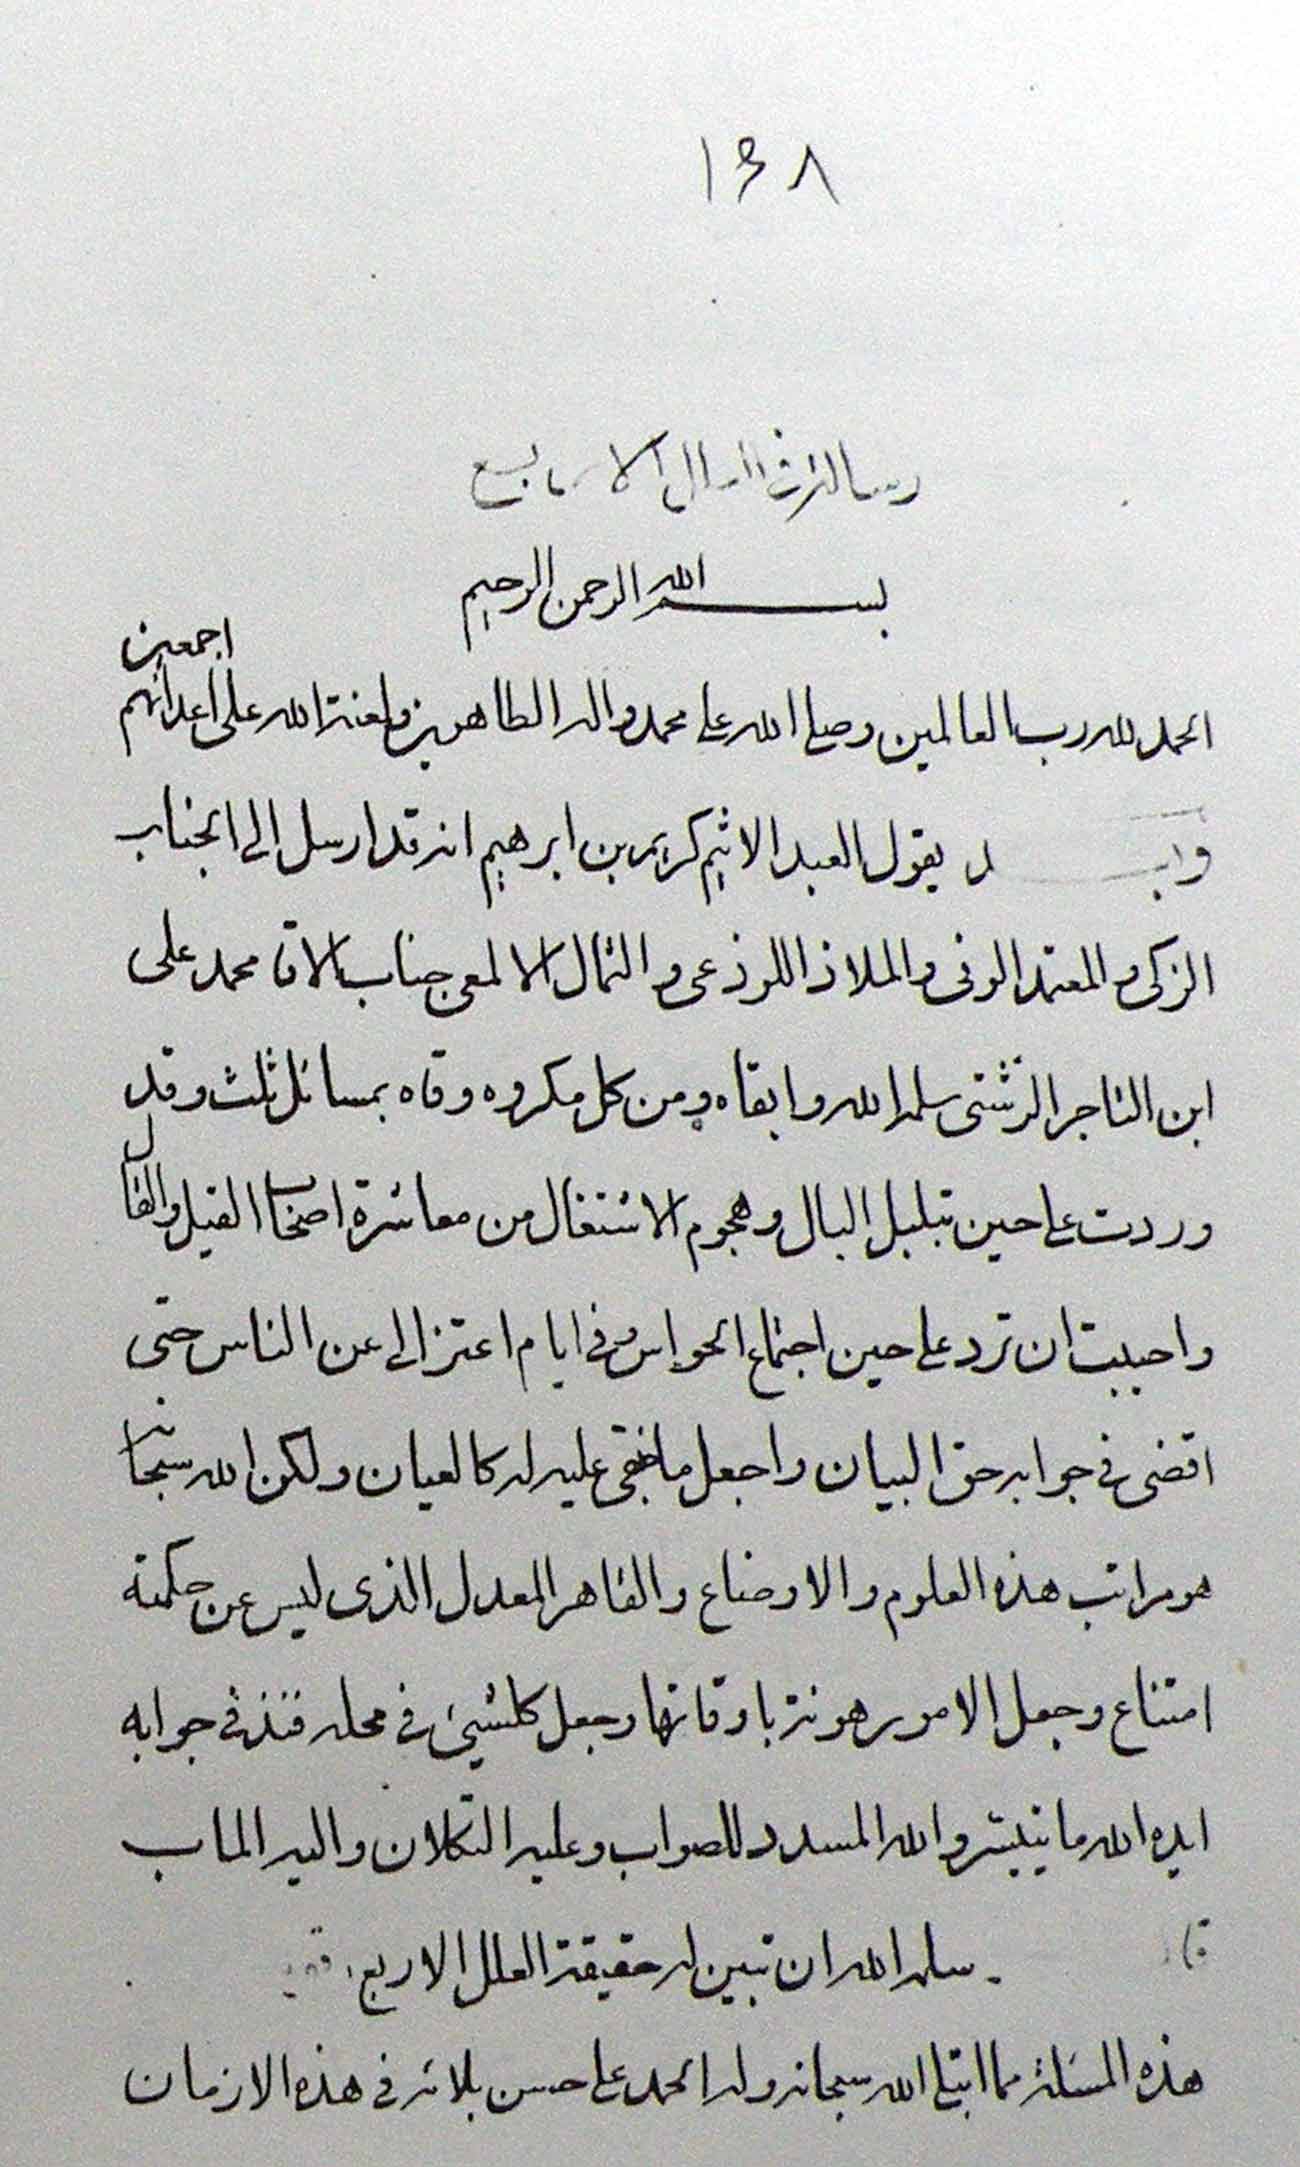 ۱۶۸
رسالة الاربع
بسم الله الرحمن الرحيم
اجمعين
الحمد لله رب العالمين وصلى الله على محمد واله الطاهرين ولعنة الله على اعدائهم
يقول العبد الاثيم كريم بن ابرهيم انه قد ارسل الى الجناب
الزكى والمعتمد الوفى والملاذ اللوذعى والثمال الالمعى جناب الاقا محمد على
ابن التاجر الرشتى سلمه الله وابقاه ومن كل مكروه وقاه بمسائل ثلث وقد
وردت على حين تبلبل البال وهجوم الاشتغال من معاشرة اصحاب القيل والقال
واحببت ان ترد على حين اجتماع الحواس وفى ايام اعتزالى عن الناس حتى
اقضى فى جوابه حق البيان واجعل ما خفى عليه له كالعيان ولكن الله سبحانه
هو مراتب هذه العلوم والاوضاع والقاهر المعدل الذى ليس عن حكمته
امتناع وجعل الامور مرهونة باوقاتها وجعل كلشيئ فى محله فنذ فى جوابه
ايده الله ما يتيسر والله المسدد للصواب وعليه التكلان واليه الماب
سلمه الله ان تبين له حقيقة العلل الاربع
هذه المسئلة مما ابتلى الله سبحانه وله الحمد على حسن بلائه فى هذه الازمان